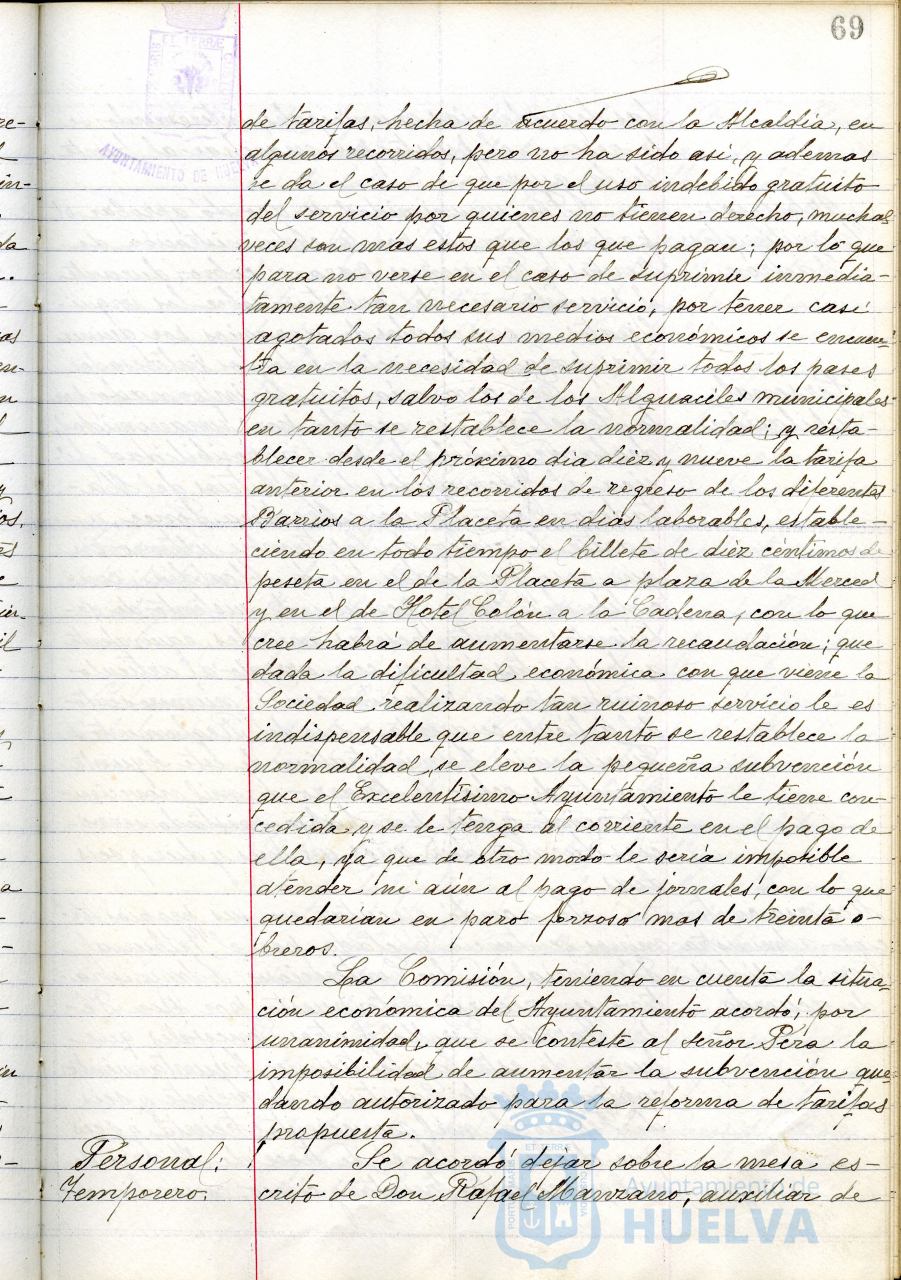 69
ET TERRÆ
AYUNTAMIENTO DE HUELVA
de tarifas, hecha de acuerdo con la Alcaldía, en
algunos recorridos, pero no ha sido así, y ademas
se da el caso de que por el uso indebido gratuito
del servicio por quienes no tienen derecho, muchas
veces son mas estos que los que pagan; por lo que
para no verse en el caso de suprimir inmedia-
tamente tan necesario servicio, por tener casi
agotados todos sus medios económicos se encuen-
tra en la necesidad de suprimir todos los pases
gratuitos, salvo los de los Alguaciles municipales
en tanto se restablece la normalidad; y resta-
blecer desde el próximo dia diez y nueve la tarifa
anterior en los recorridos de regreso de los diferentes
Barrios a la Placeta en dias laborables, estable-
ciendo en todo tiempo el billete de diez céntimos de
peseta en el de la Placeta a plaza de la Merced
y en el de Hotel Colón a la Cadena, con lo que
cree habrá de aumentarse la recaudación; que
dada la dificultad económica con que viene la
Sociedad realizando tan ruinoso servicio le es
indispensable que entre tanto se restablece la
normalidad, se eleve la pequeña subvención
que el Excelentísimo Ayuntamiento le tiene con-
cedida y se le tenga al corriente en el pago de
ella, ya que de otro modo le sería imposible
atender ni aún al pago de jornales, con lo que
quedarían en paro forzoso mas de treinta o-
breros.
La Comisión, teniendo en cuenta la situa-
ción económica del Ayuntamiento acordó, por
unanimidad, que se conteste al señor Pera la
imposibilidad de aumentar la subvención que-
dando autorizado para la reforma de tarifas
propuesta.
Personal: Se acordó dejar sobre la mesa es-
Temporero. crito de Don Rafael Manzano, auxiliar de
Ayuntamiento de
HUELVA